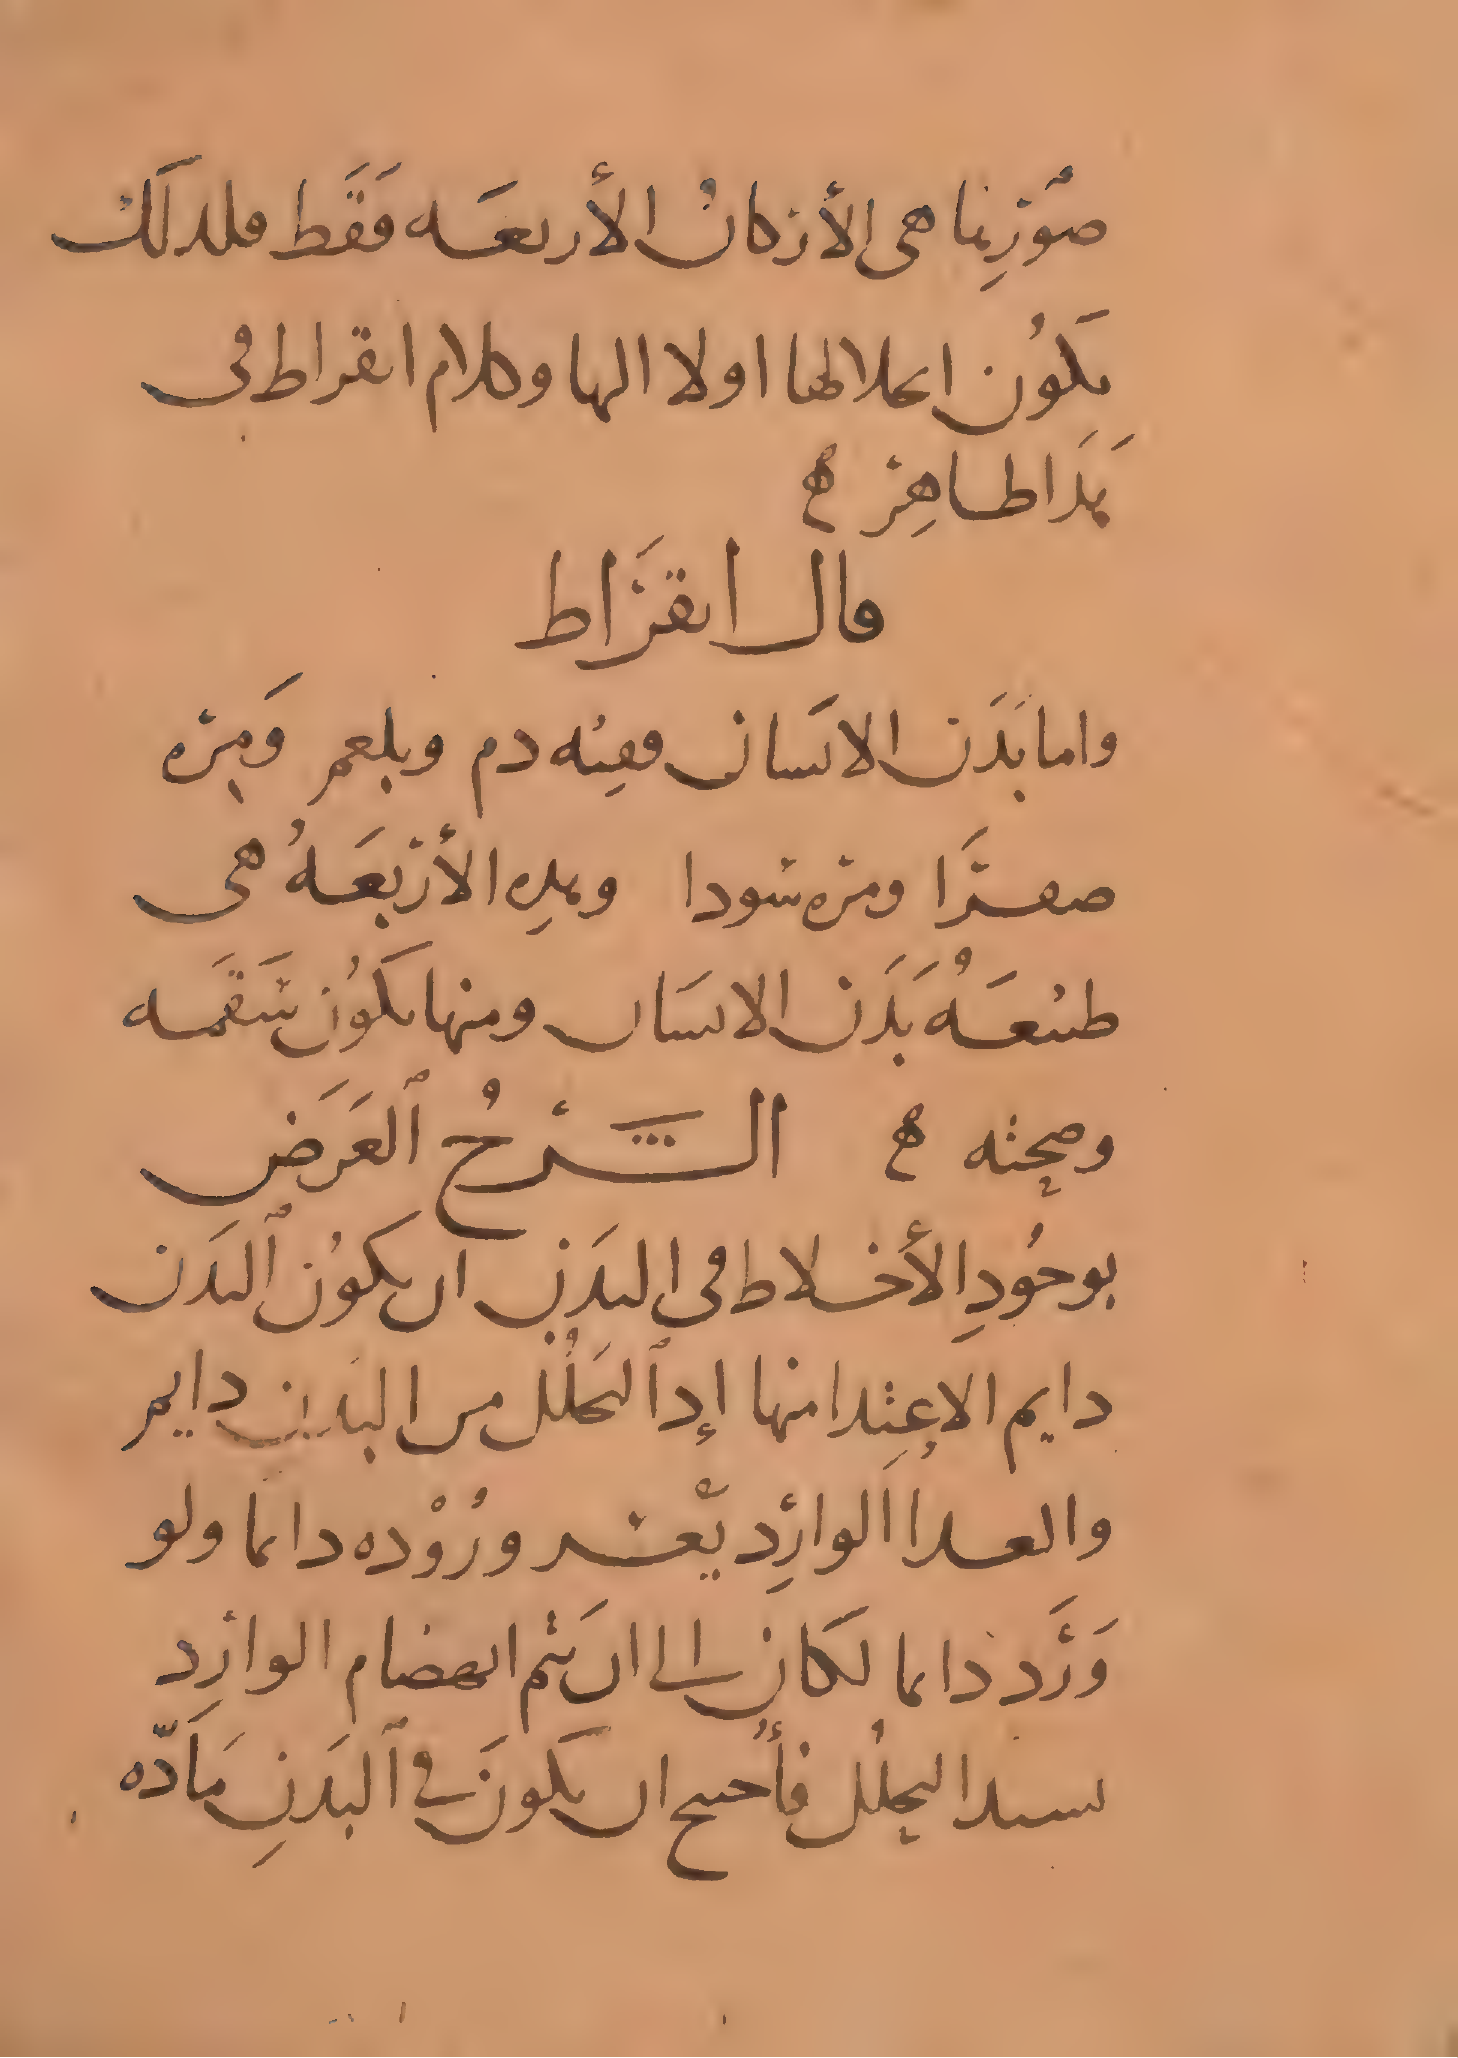 صورتها هى الأركان الأربعه فقط فلذلك
يكون انحلالها اولا اليها وكلام ابقراط فى
هذا ظاهر ه
قال ابقراط
واما بدن الانسان ففيه دم وبلغم ومره
صفرا ومره سودا وهذه الأربعه هى
طبيعه بدن الانسان ومنها يكون سقمه
وصحته ه الشرح الغرض
بوجود الأخلاط فى البدن ان يكون البدن
دايم الاغتذا منها إذ التحلل من البدن دايم
والغذا الوارد يعسر وروده دائما ولو
ورد دائما لكان الى ان يتم انهضام الوارد
يستد التحلل فأحتيج ان يكون في البدن مادّه